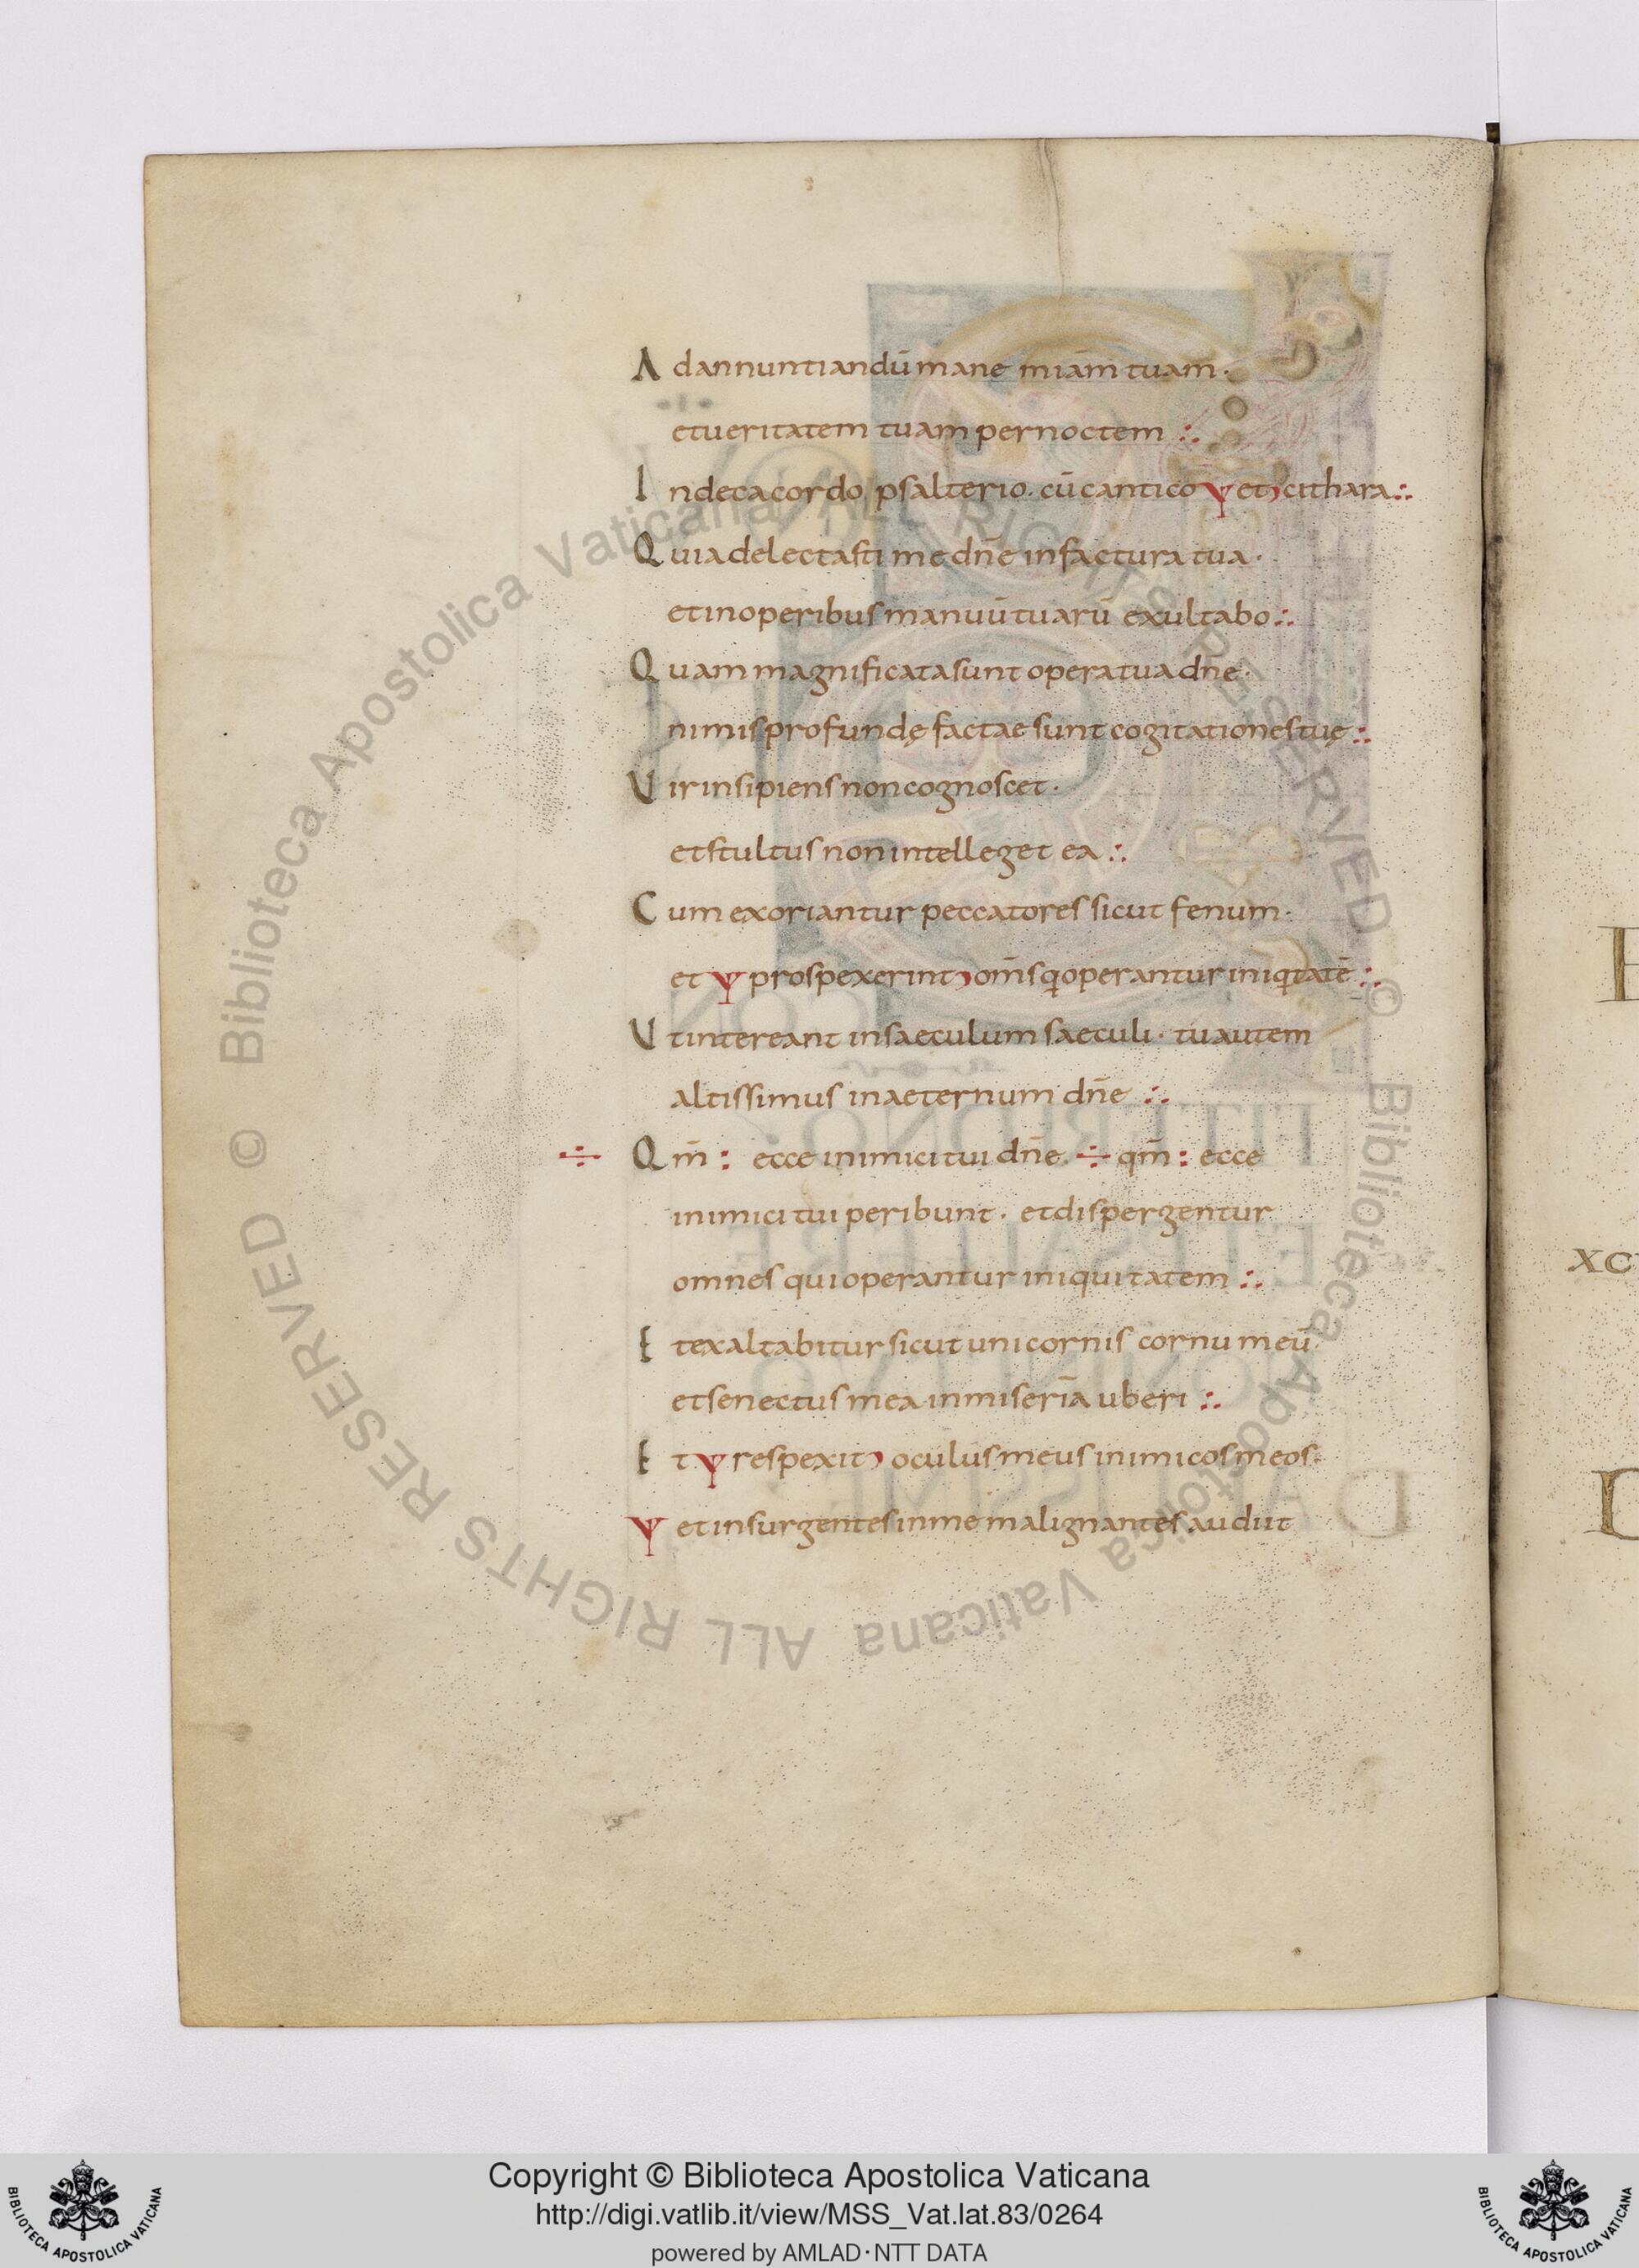 Ad annuntiandū mane miām tuam·
et ueritatem tuam per noctem :·
In decacordo psalterio· cū cantico ψ et ɔ cithara :·
Quia delectasti me dn̄e in factura tua·
et in operibus manuū tuarū exultabo :·
Quam magnificata sunt opera tua dn̄e·
nimis profundę factae sunt cogitationes tuę :·
Uir insipiens non cognoscet·
et stultus non intelleget ea :·
Cum exoriantur peccatores sicut fenum·
et ψ prospexerint ɔ om̄s qi operantur iniqitatē :·
Ut intereant in saeculum saeculi· tu autem
altissimus in aeternum dn̄e :·
÷ Qm̄ : ecce inimici tui dn̄e· ÷ qm̄ : ecce
inimici tui peribunt· et dispergentur
omnes qui operantur iniquitatem :·
Et exaltabitur sicut unicornis cornu meū·
et senectus mea in miseriā uberi :·
Et ψ respexit ɔ oculus meus inimicos meos·
ψ et insurgentes in me malignantes audiit
XC
© Biblioteca Apostolica Vaticana ALL RIGHTS RESERVED © Biblioteca Apostolica Vaticana ALL RIGHTS RESERVED
Copyright © Biblioteca Apostolica Vaticana
http://digi.vatlib.it/view/MSS_Vat.lat.83/0264
powered by AMLAD·NTT DATA
BIBLIOTECA APOSTOLICA VATICANA
BIBLIOTECA APOSTOLICA VATICANA